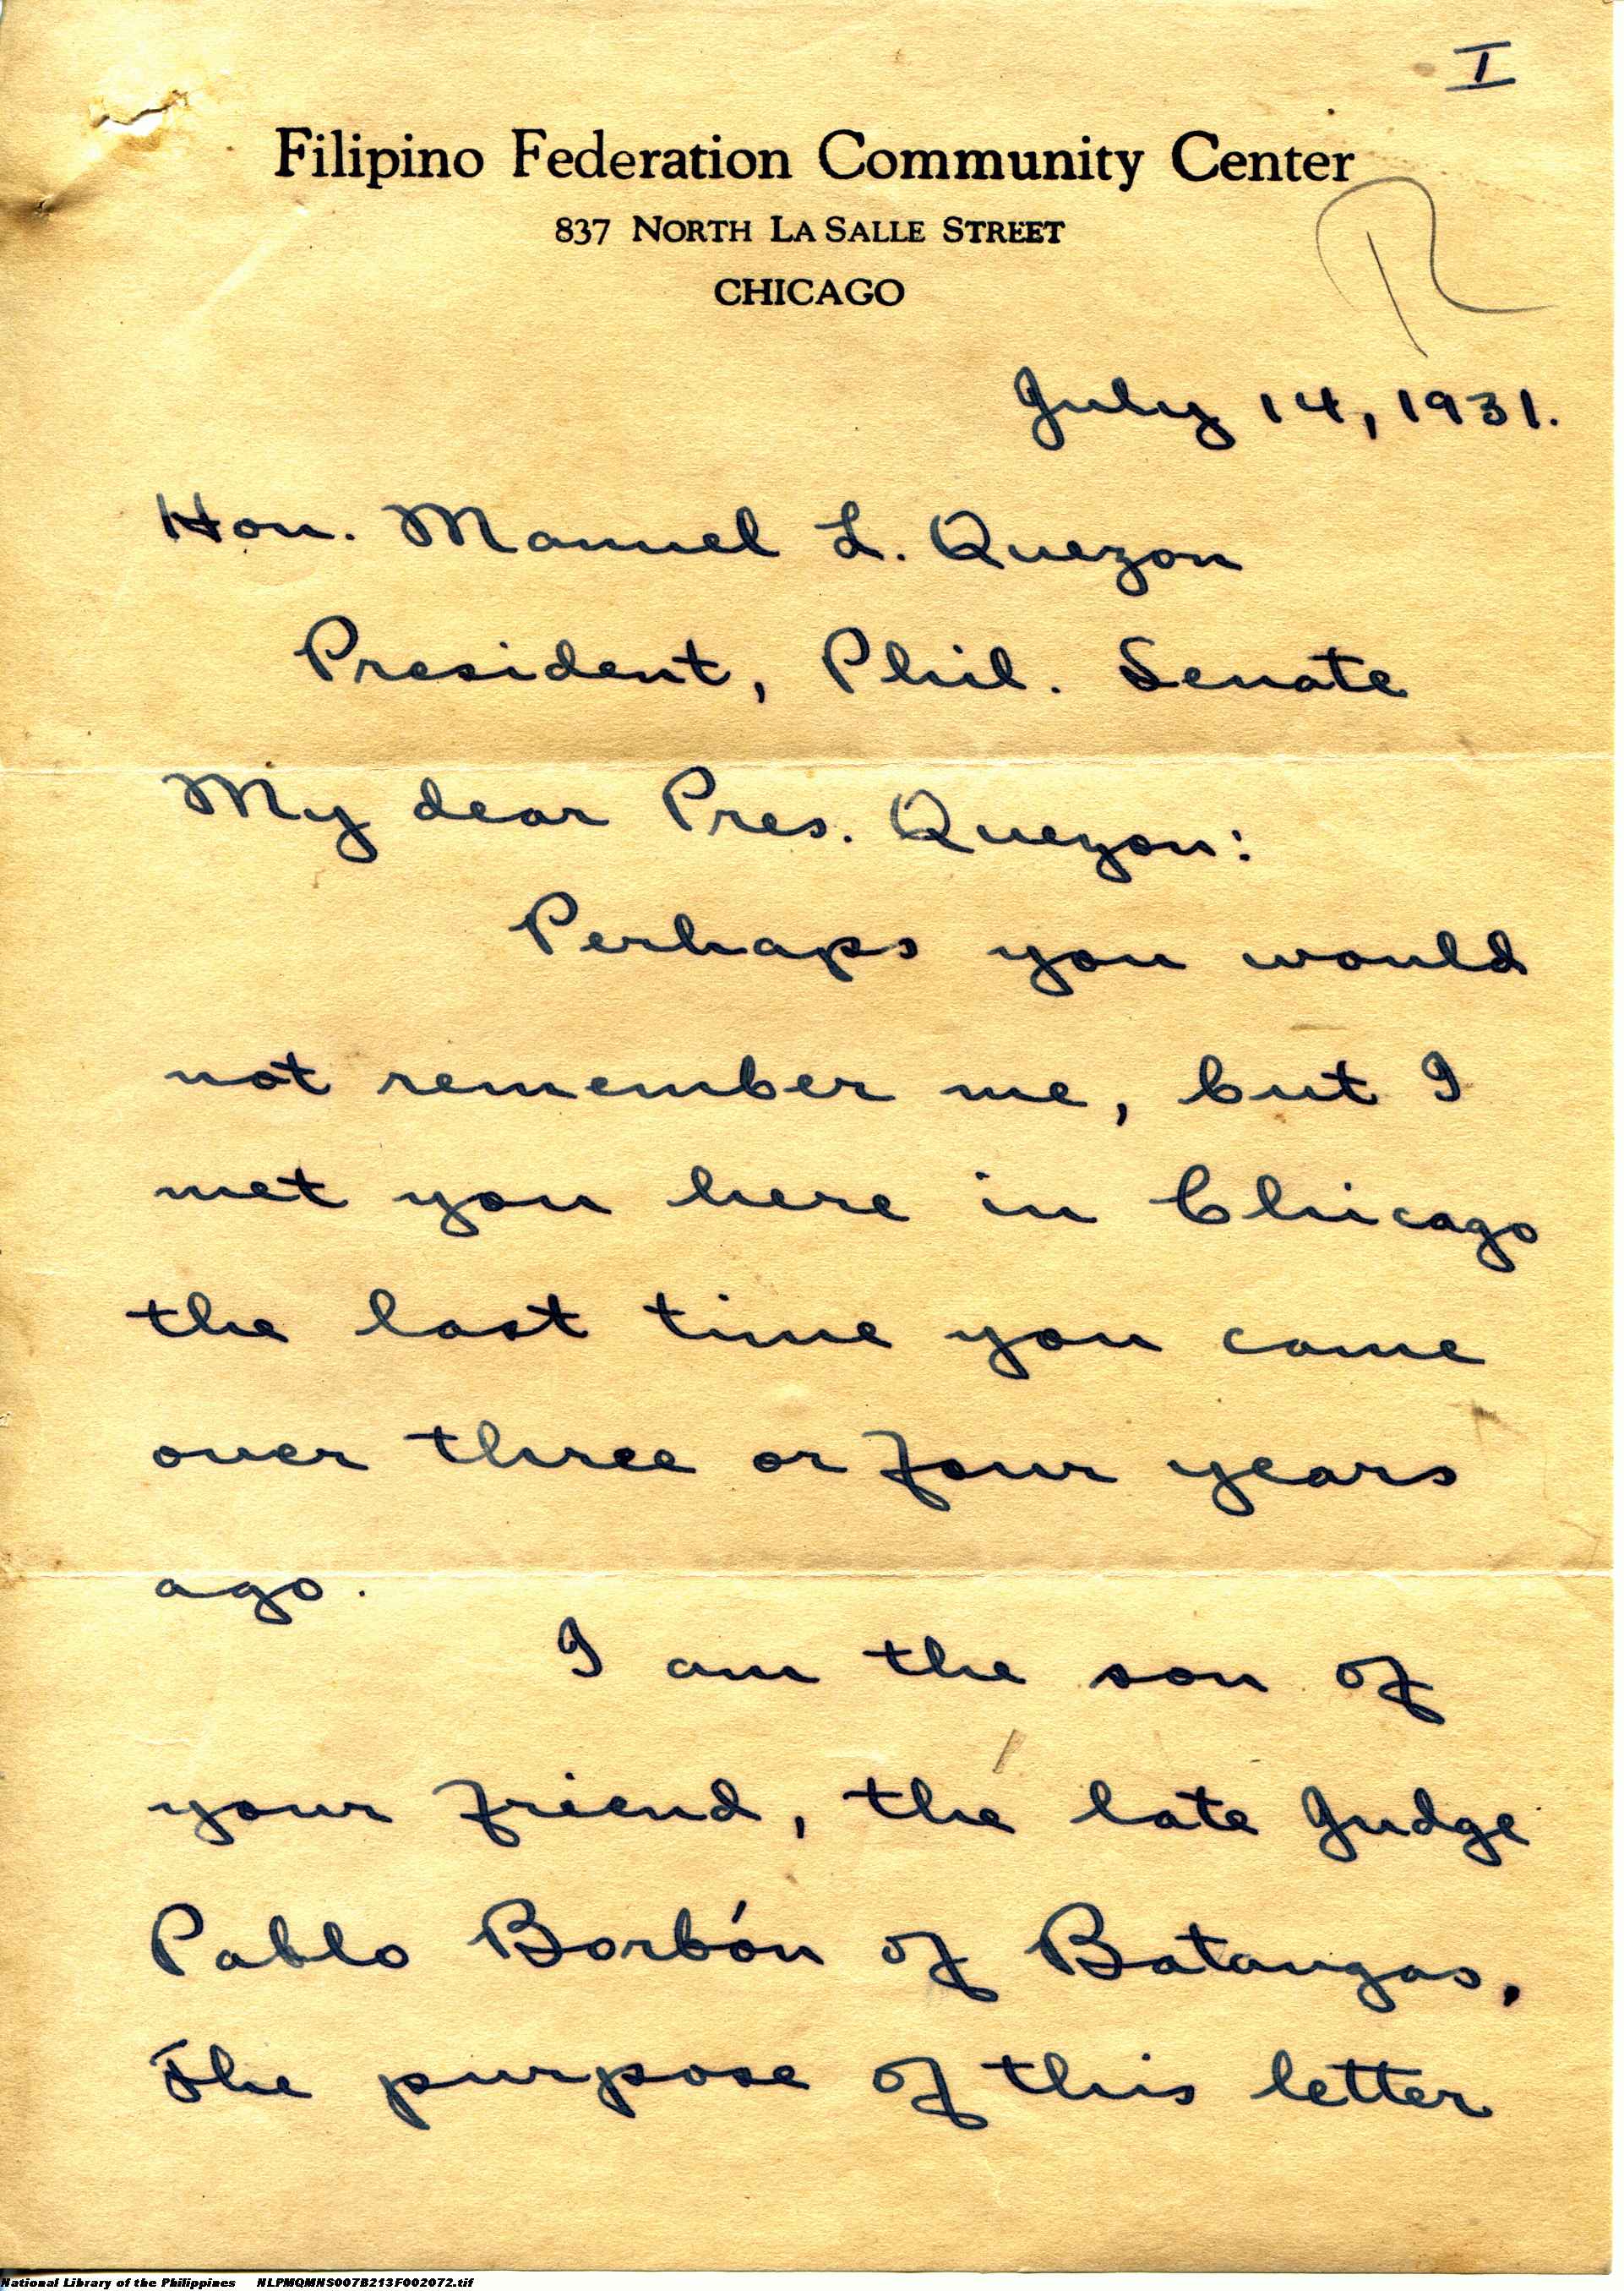 I
Filipino Federation Community Center
837 North La Salle Street
CHICAGO
R
July 14, 1931.
Hon. Manuel L. Quezon
President, Phil. Senate
My dear Pres. Quezon:
Perhaps you would
not remember me, but I
met you here in Chicago
the last time you came
over three or four years
ago.
I am the son of
your friend, the late Judge
Pablo Borbón of Batangas.
The purpose of this letter
National Library of the Philippines NLPMQMNS007B213F002072.tif